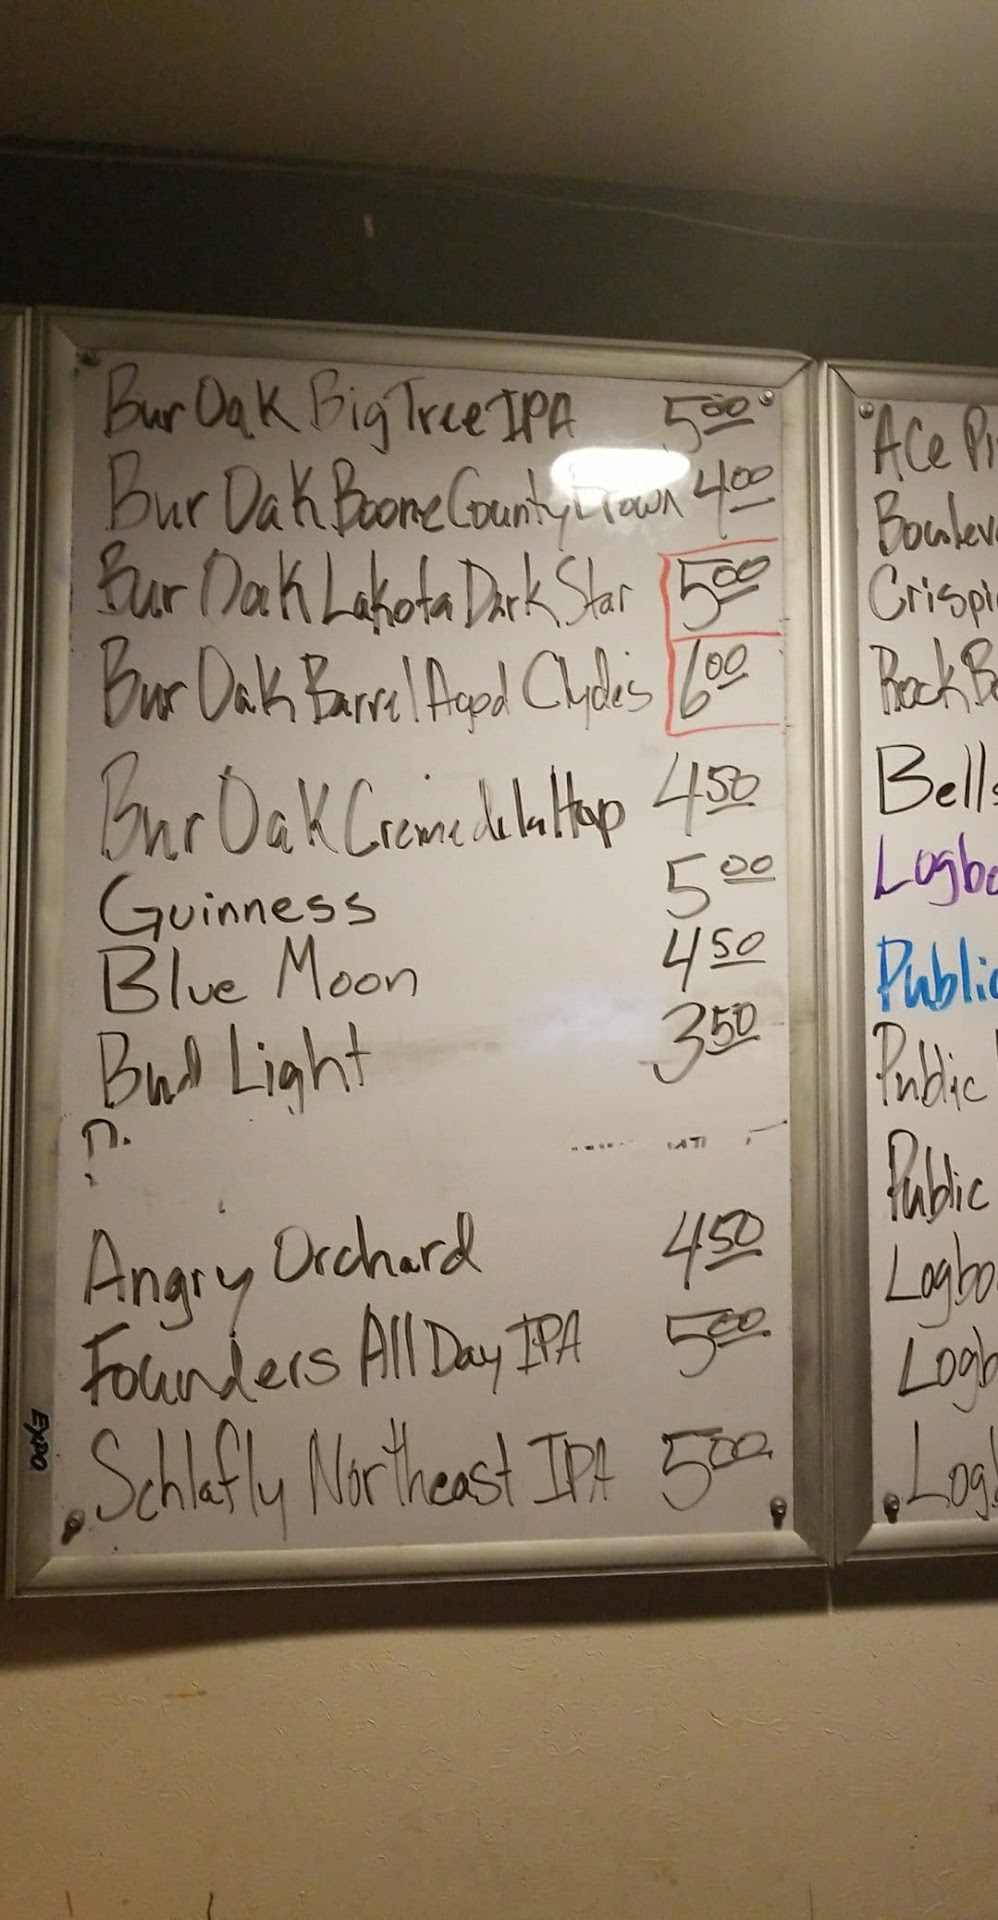 Bur Oak Big Tree IPA 5.00
Bur Oak Boone County Brown 4.00
Bur Oak Lakota Dark Star 5.00
Bur Oak Barrel Aged Clydes 6.00
Bur Oak Creme de la Hop 4.50
Guinness 5.00
Blue Moon 4.50
Bud Light 3.50
Angry Orchard 4.50
Founders All Day IPA 5.00
Schlafly Northeast IPA 5.00
EXPO
Ace Pi
Boulev
Crispi
Rock B
Bells
Logbo
Public
Public
Public
Logbo
Logb
Log